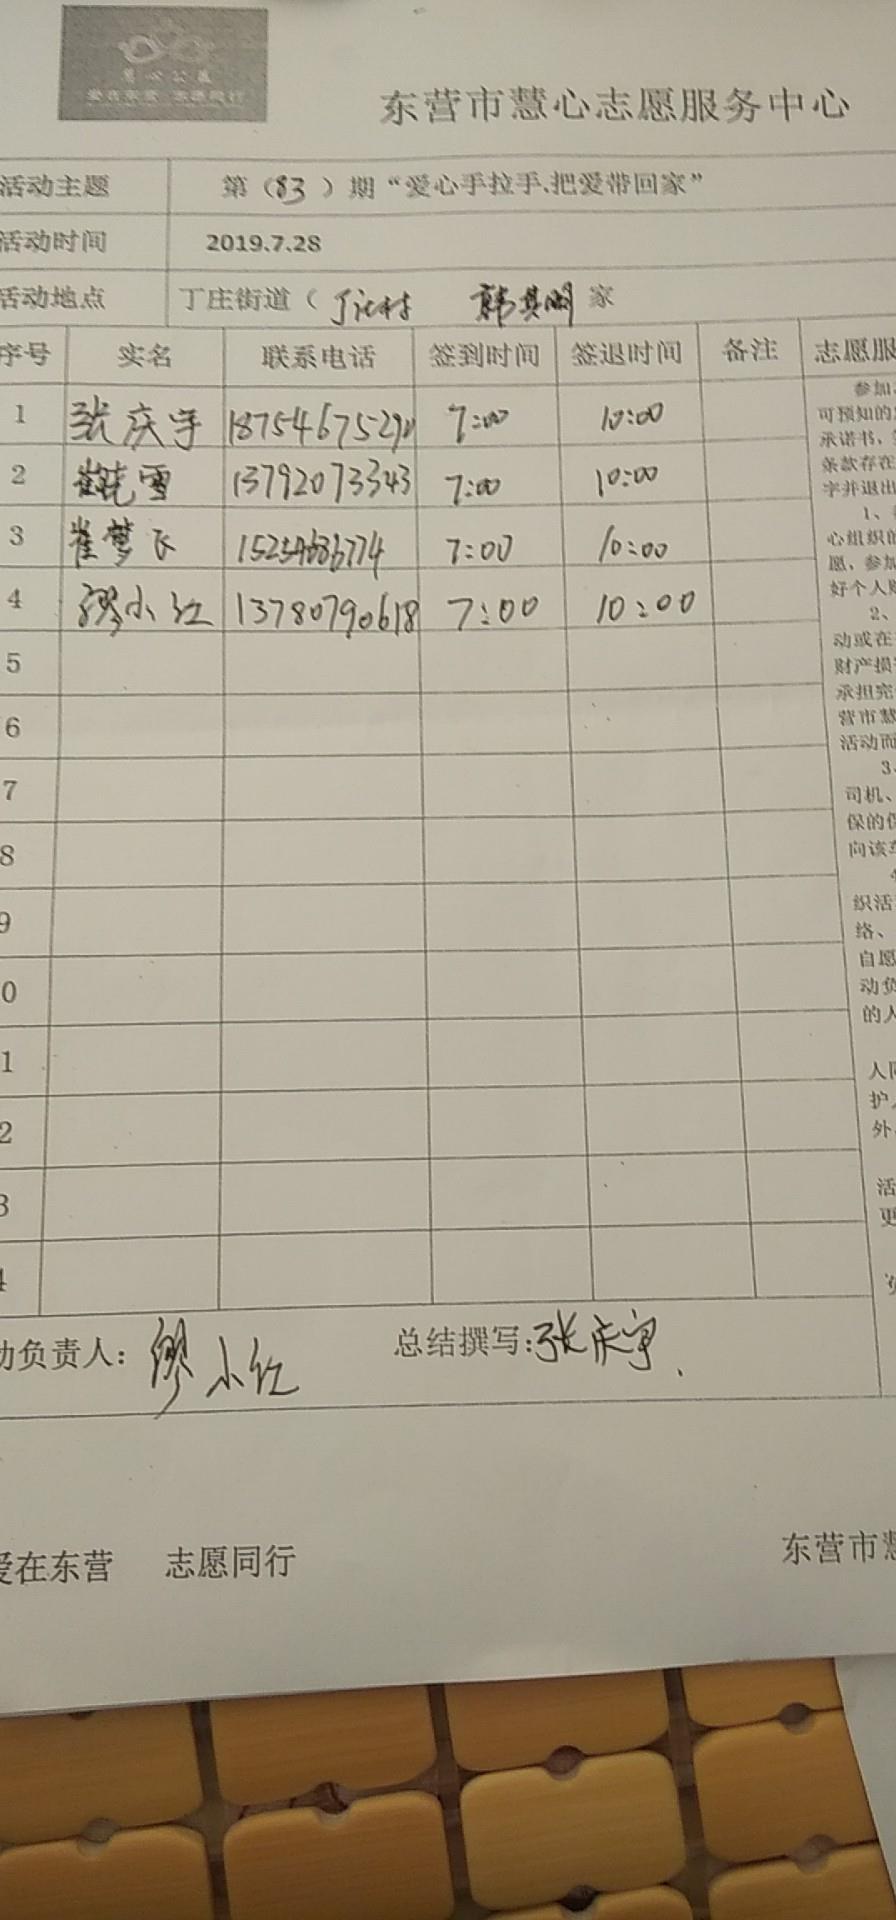 慧心公益
爱在东营 志愿同行
东营市慧心志愿服务中心
活动主题 第（83）期“爱心手拉手,把爱带回家”
活动时间 2019.7.28
活动地点 丁庄街道（ 家
序号 实名 联系电话 签到时间 签退时间 备注 志愿服
1 张庆宇 1875467529 7:00 10:00
2 崔艳雪 13792073343 7:00 10:00
3 崔梦飞 7:00 10:00
4 缪小红 13780790618 7:00 10:00
5
6
7
8
9
0
1
2
3
4
参加
可预知的
承诺书、
条款存在
字并退出
1、
心组织的
愿，参加
好个人财
2、
动或在
财产损
承担完
营市慧
活动而
3、
司机、
保的保
向该车
4
织活
络、
自愿
动负
的人
人同
护人
外
活
更
动负责人：缪小红 总结撰写:张庆宇
爱在东营 志愿同行
东营市慧